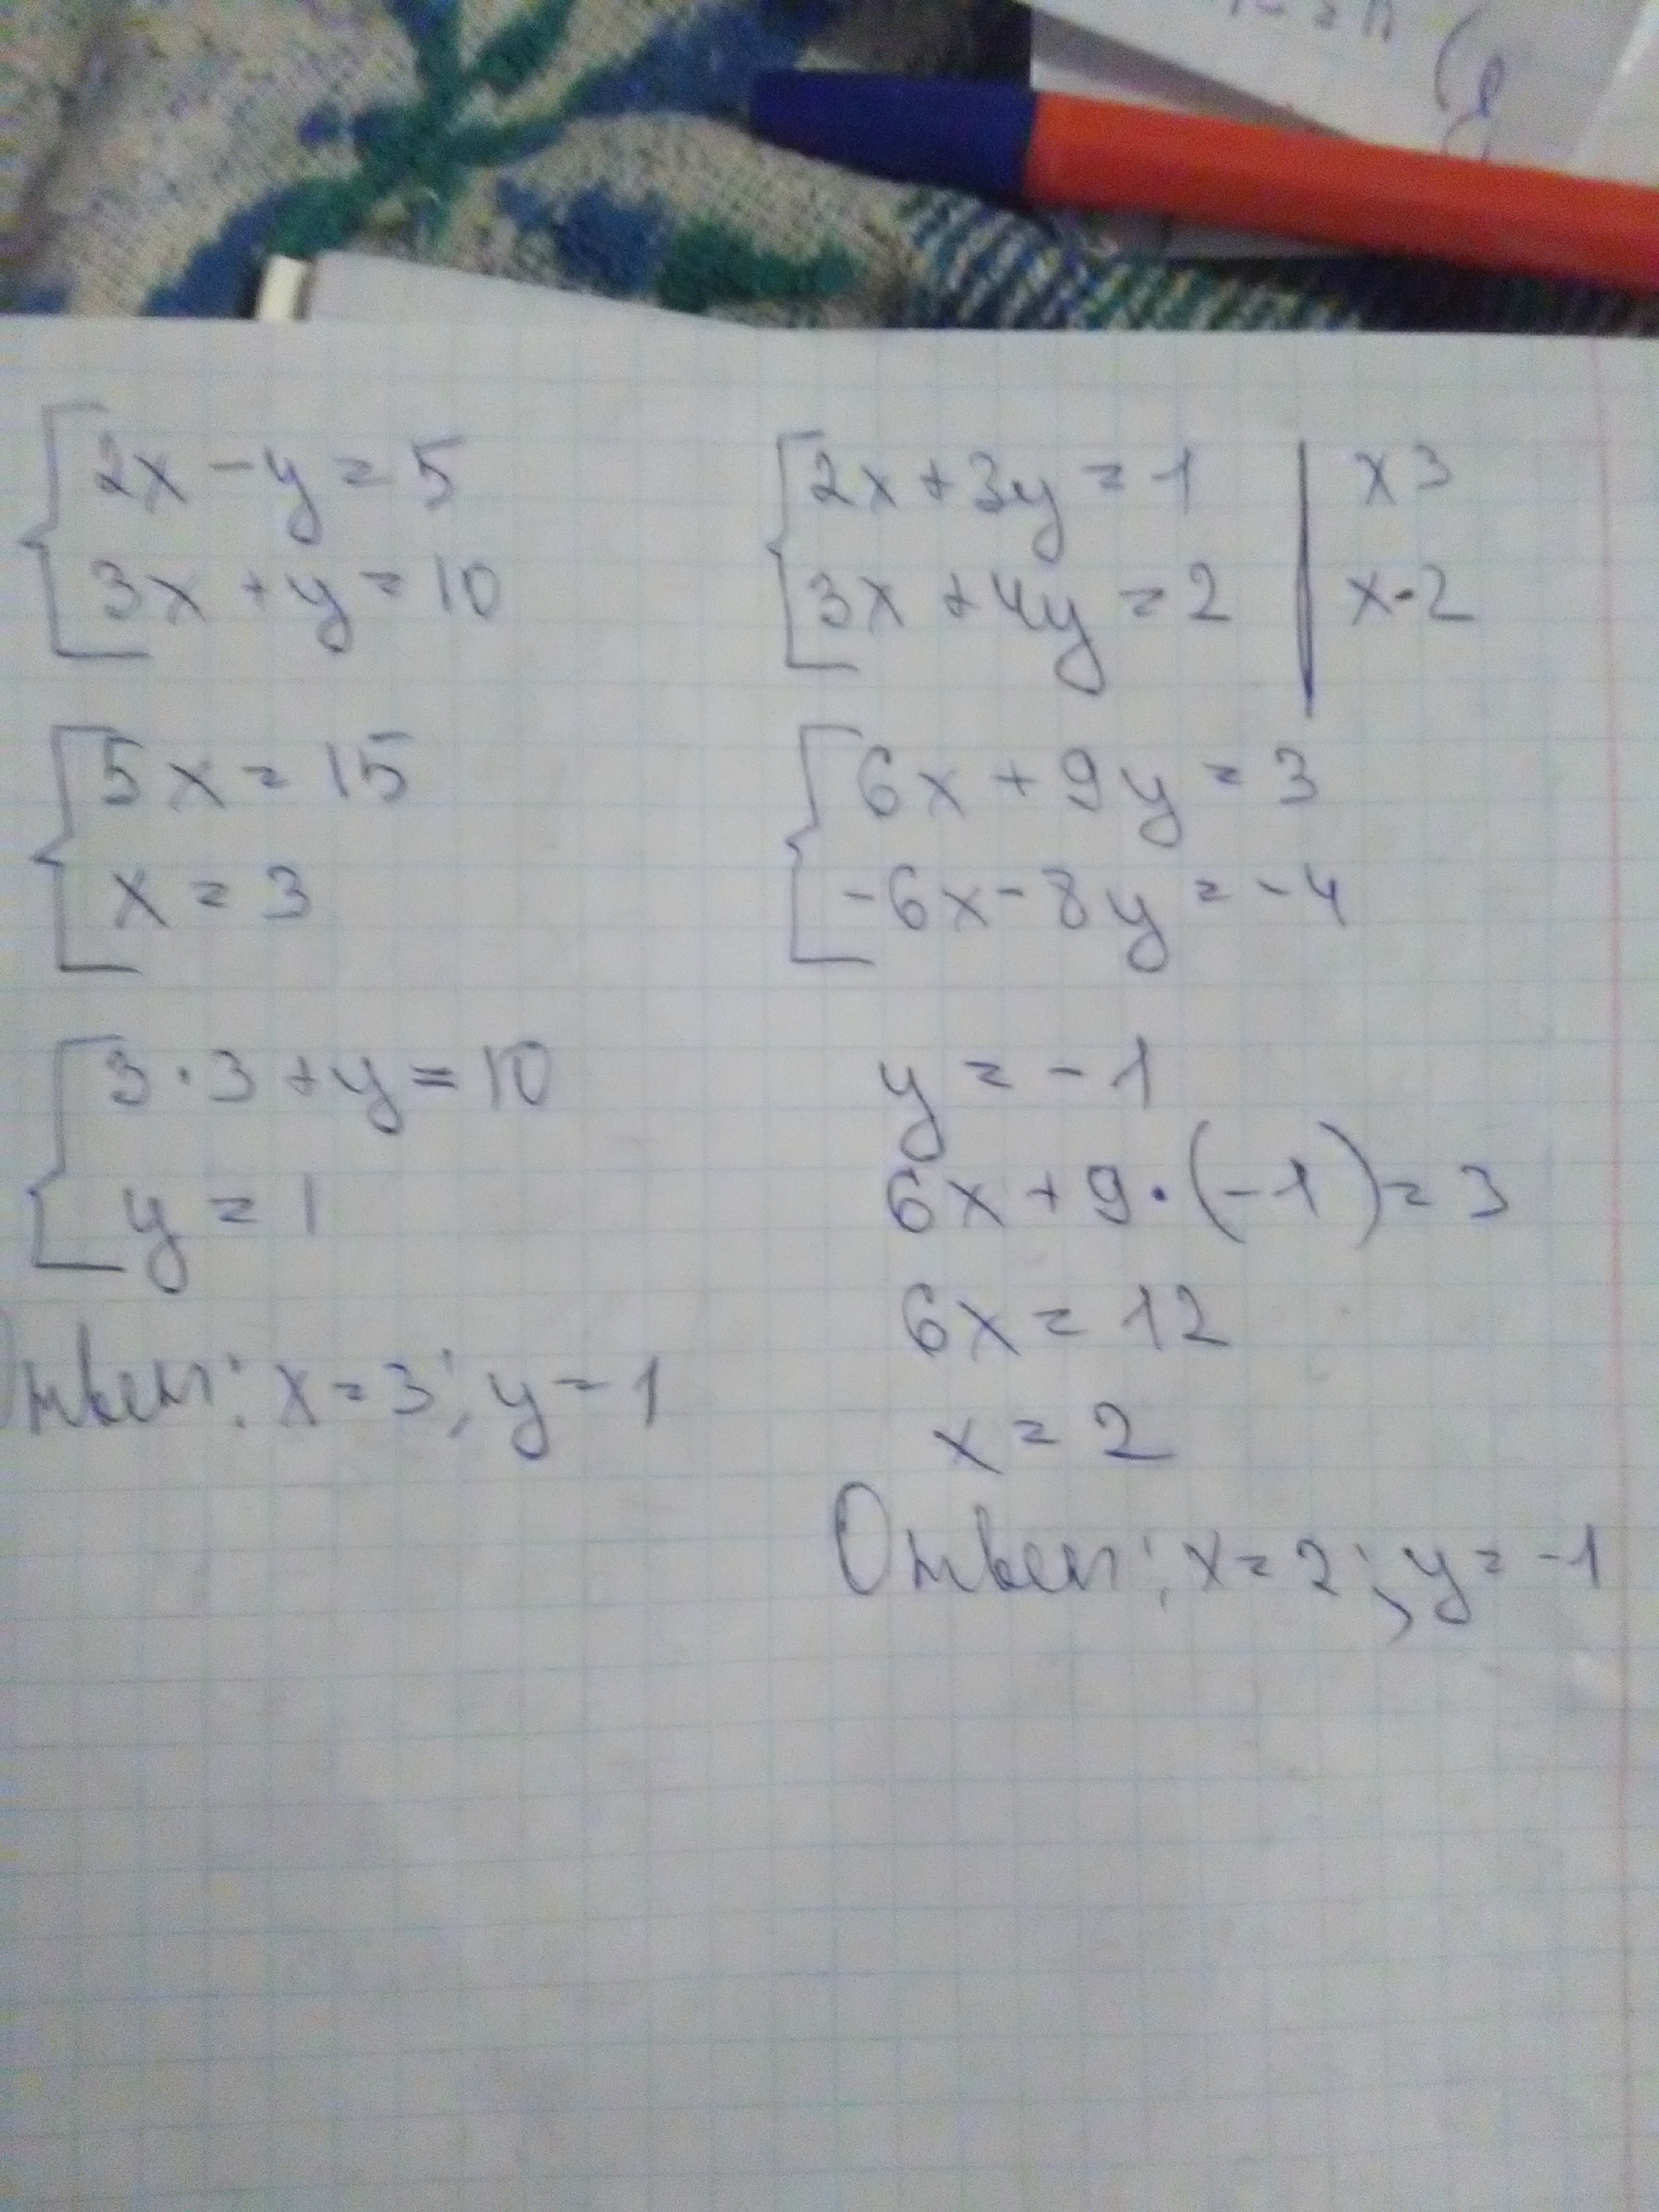 2x - y = 5
3x + y = 10
5x = 15
x = 3
3·3 + y = 10
y = 1
Ответ: x = 3; y = 1
2x + 3y = 1 | x 3
3x + 4y = 2 | x -2
6x + 9y = 3
-6x - 8y = -4
y = -1
6x + 9·(-1) = 3
6x = 12
x = 2
Ответ: x = 2; y = -1